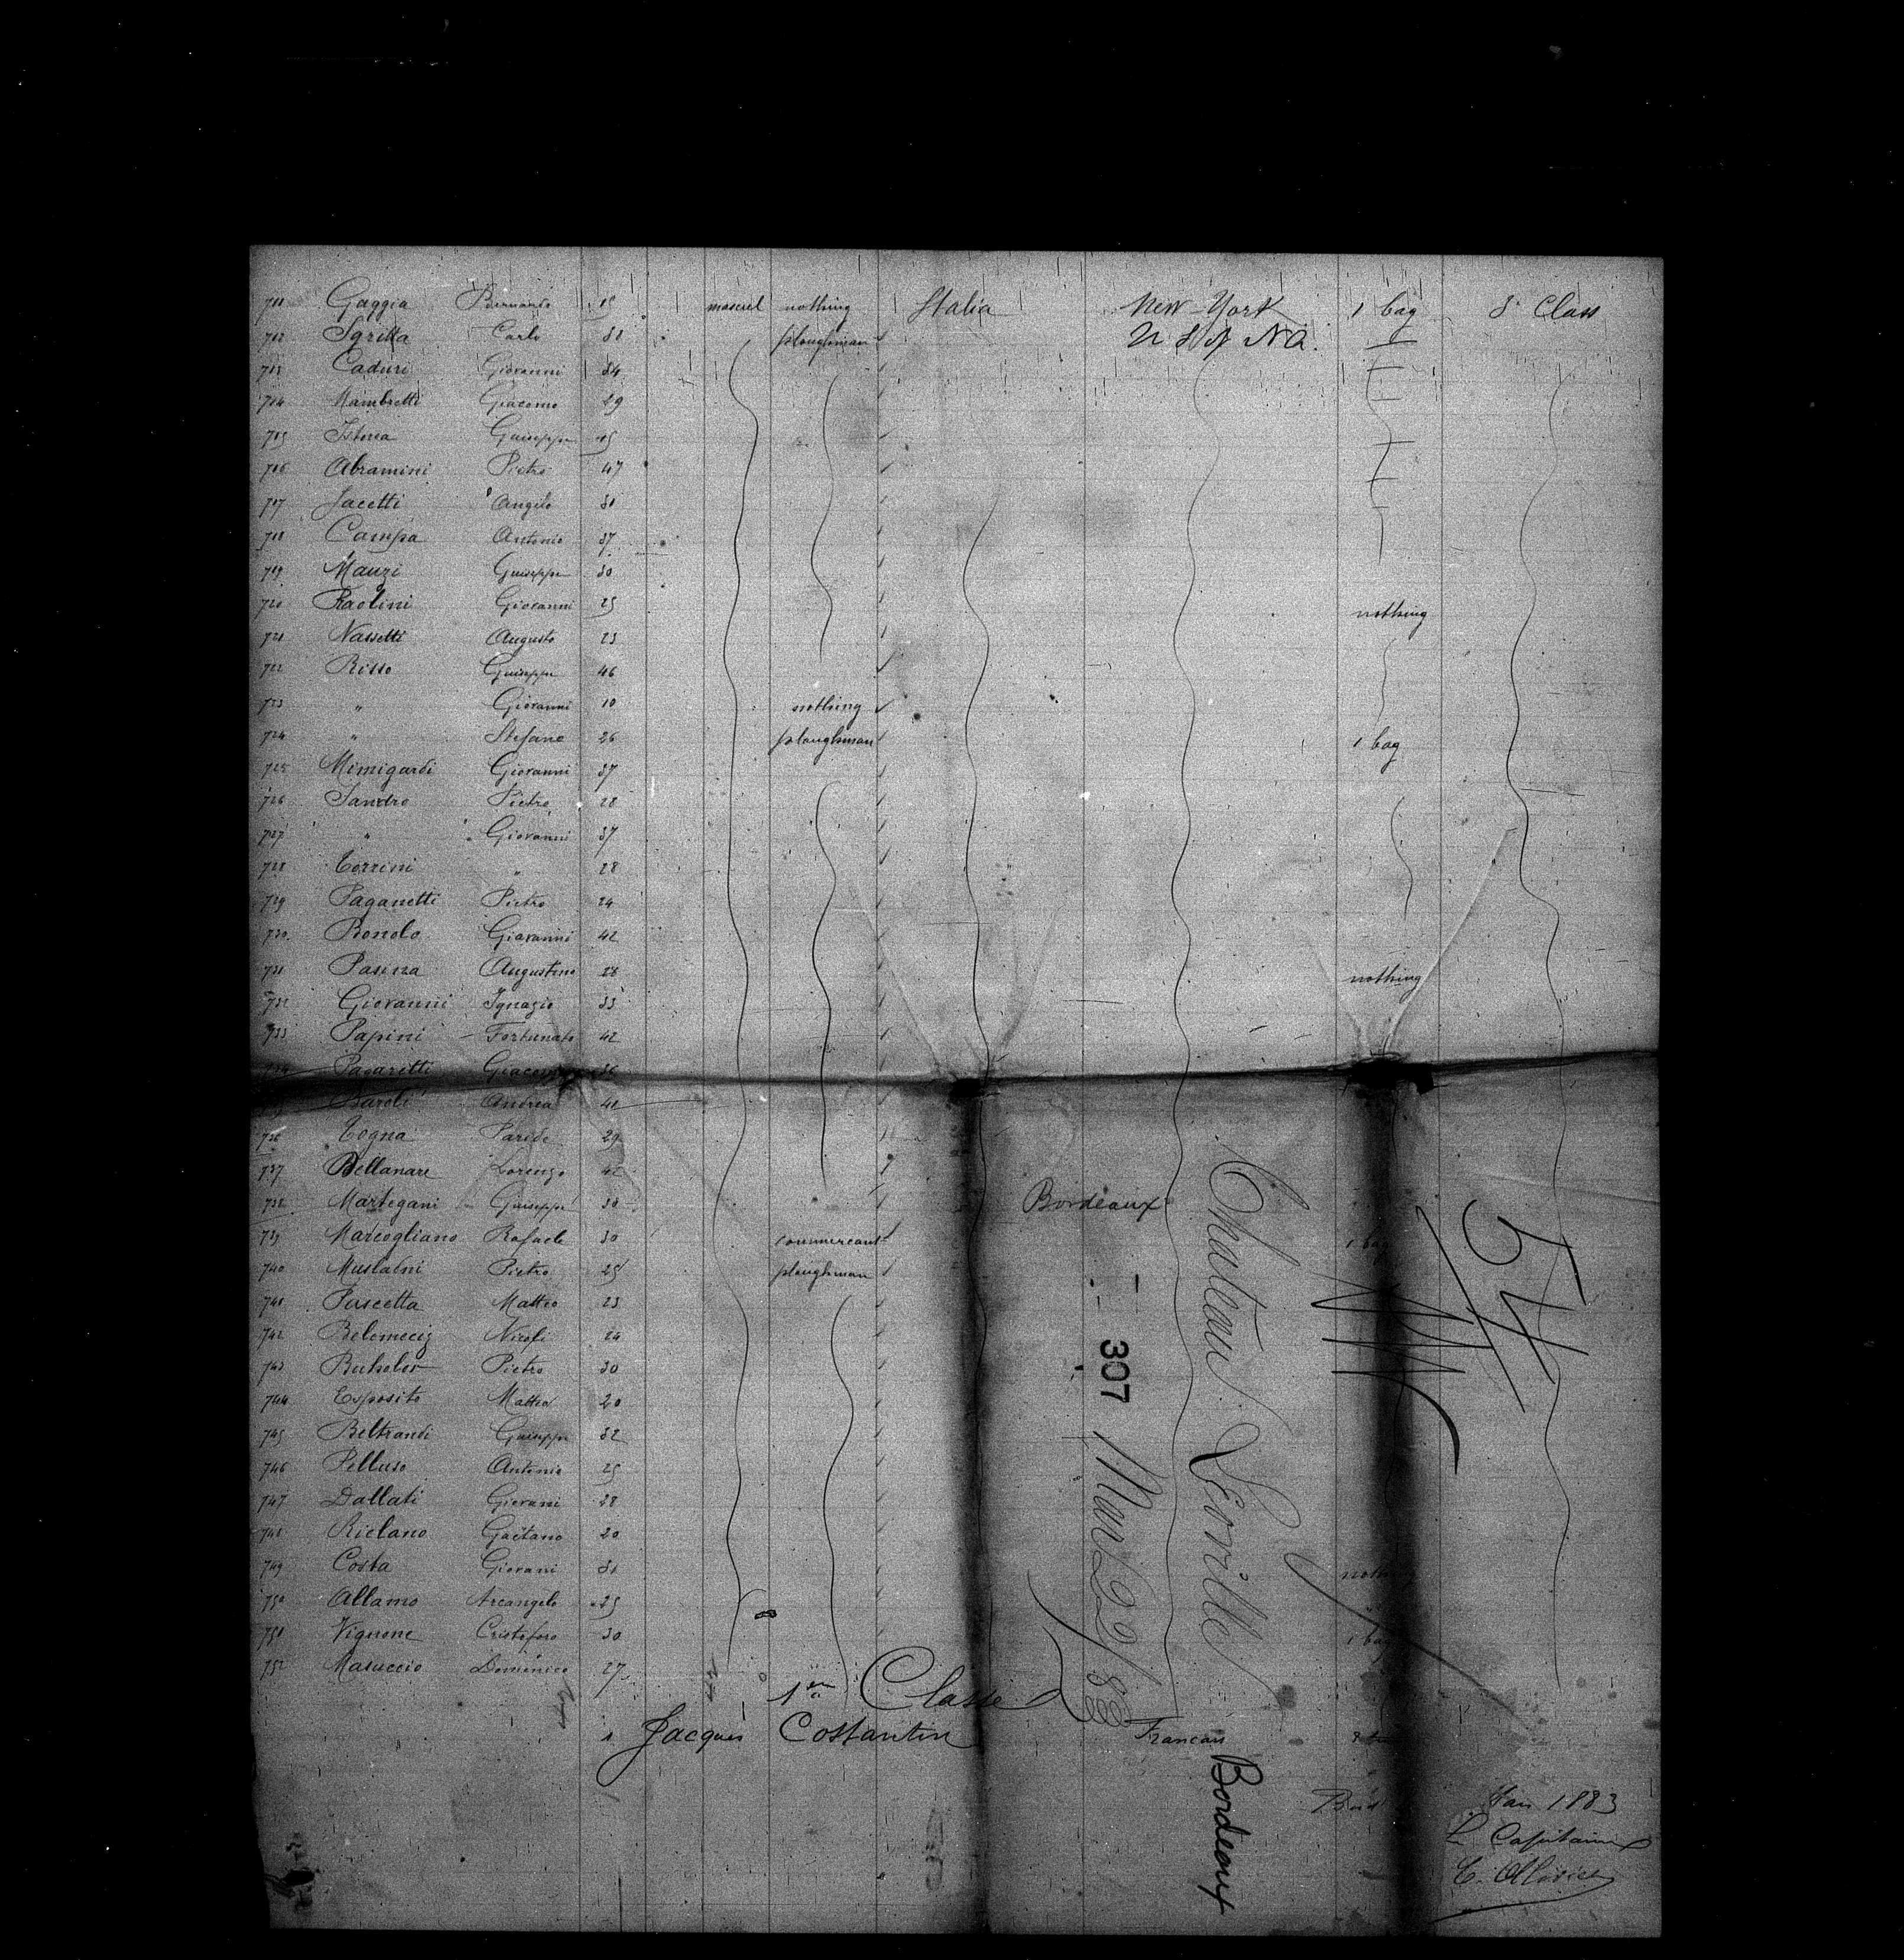 711 Gaggia Bernardo 19 mascul nothing Italia New-York 1 bag 3e Class
712 Sgritta Carlo 31 ploughman U S of NA.
713 Caduri Giovanni 34
714 Mambretti Giacomo 29
715 Giuseppe
716 Abramini Pietro 47
717 Jacetti Angelo 30
718 Campa Antonio 37
719 Mauri Giuseppe 30
720 Paolini Giovanni 25 nothing
721 Nassetti Augusto 23
722 Risso Giuseppe 46
723 " Giovanni 10 nothing
724 " Stefano 26 ploughman 1 bag
725 Mimigardi Giovanni 37
726 Sandro Pietro 28
727 " Giovanni 37
728 Torrini " 28
729 Paganetti Pietro 24
730 Bonolo Giovanni 42
731 Pasina Augustino 28 nothing
732 Giovanni Ignazio 33
733 Papini Fortunato 42
Paganetti 36
Baroli Andrea
736 Togna Paride 29
737 Bellanare Lorenzo 42
738 Martegani Giuseppe 30 Bordeaux
739 Marcogliano Rafaele 30 commercant 1 bag
740 Muslatni Pietro 25 ploughman
741 Puscetta Matteo 23
742 Belemecig Nicoli 24
743 Buholer Pietro 30
744 Esposito Matteo 20
745 Beltrandi Giuseppe 32
746 Pelluso Antonio 25
747 Dallati Giovani 28
748 Riclano Gaetano 20
749 Costa Giovani nothing
750 Allamo Arcangelo 25
751 Vignone Cristoforo 30 1 bag
752 Masuccio Domenico 27
1ere Classe
1 Jacques Costantin Francais
Jan 1883
Le Capitaine
54
Chateau Leoville
Bordeaux
307 Mar 22/83